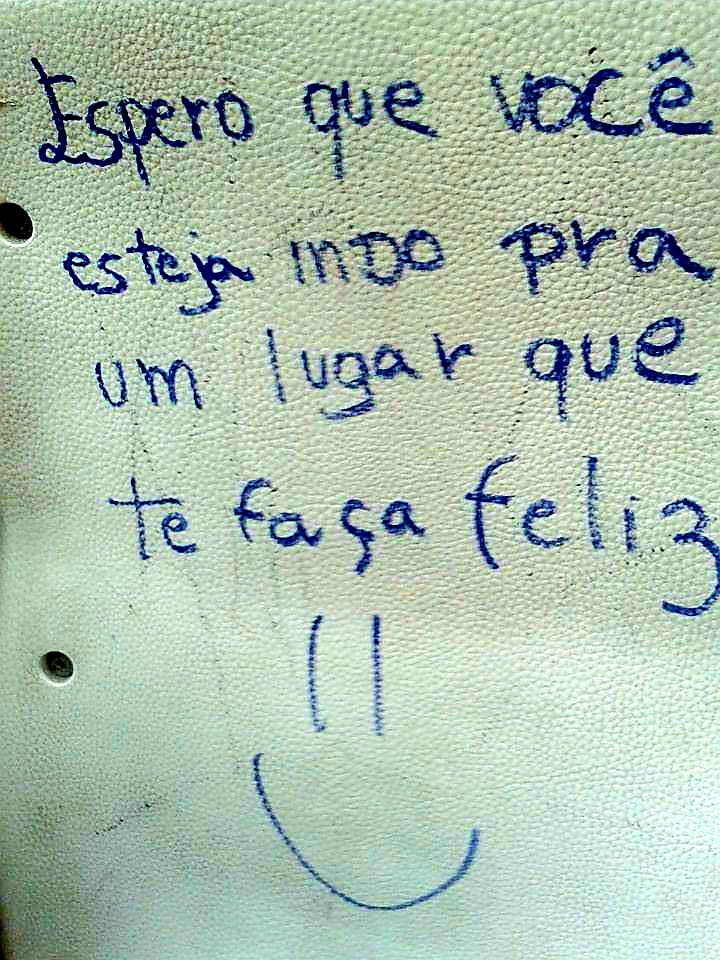 Espero que você
esteja indo pra
um lugar que
te faça feliz